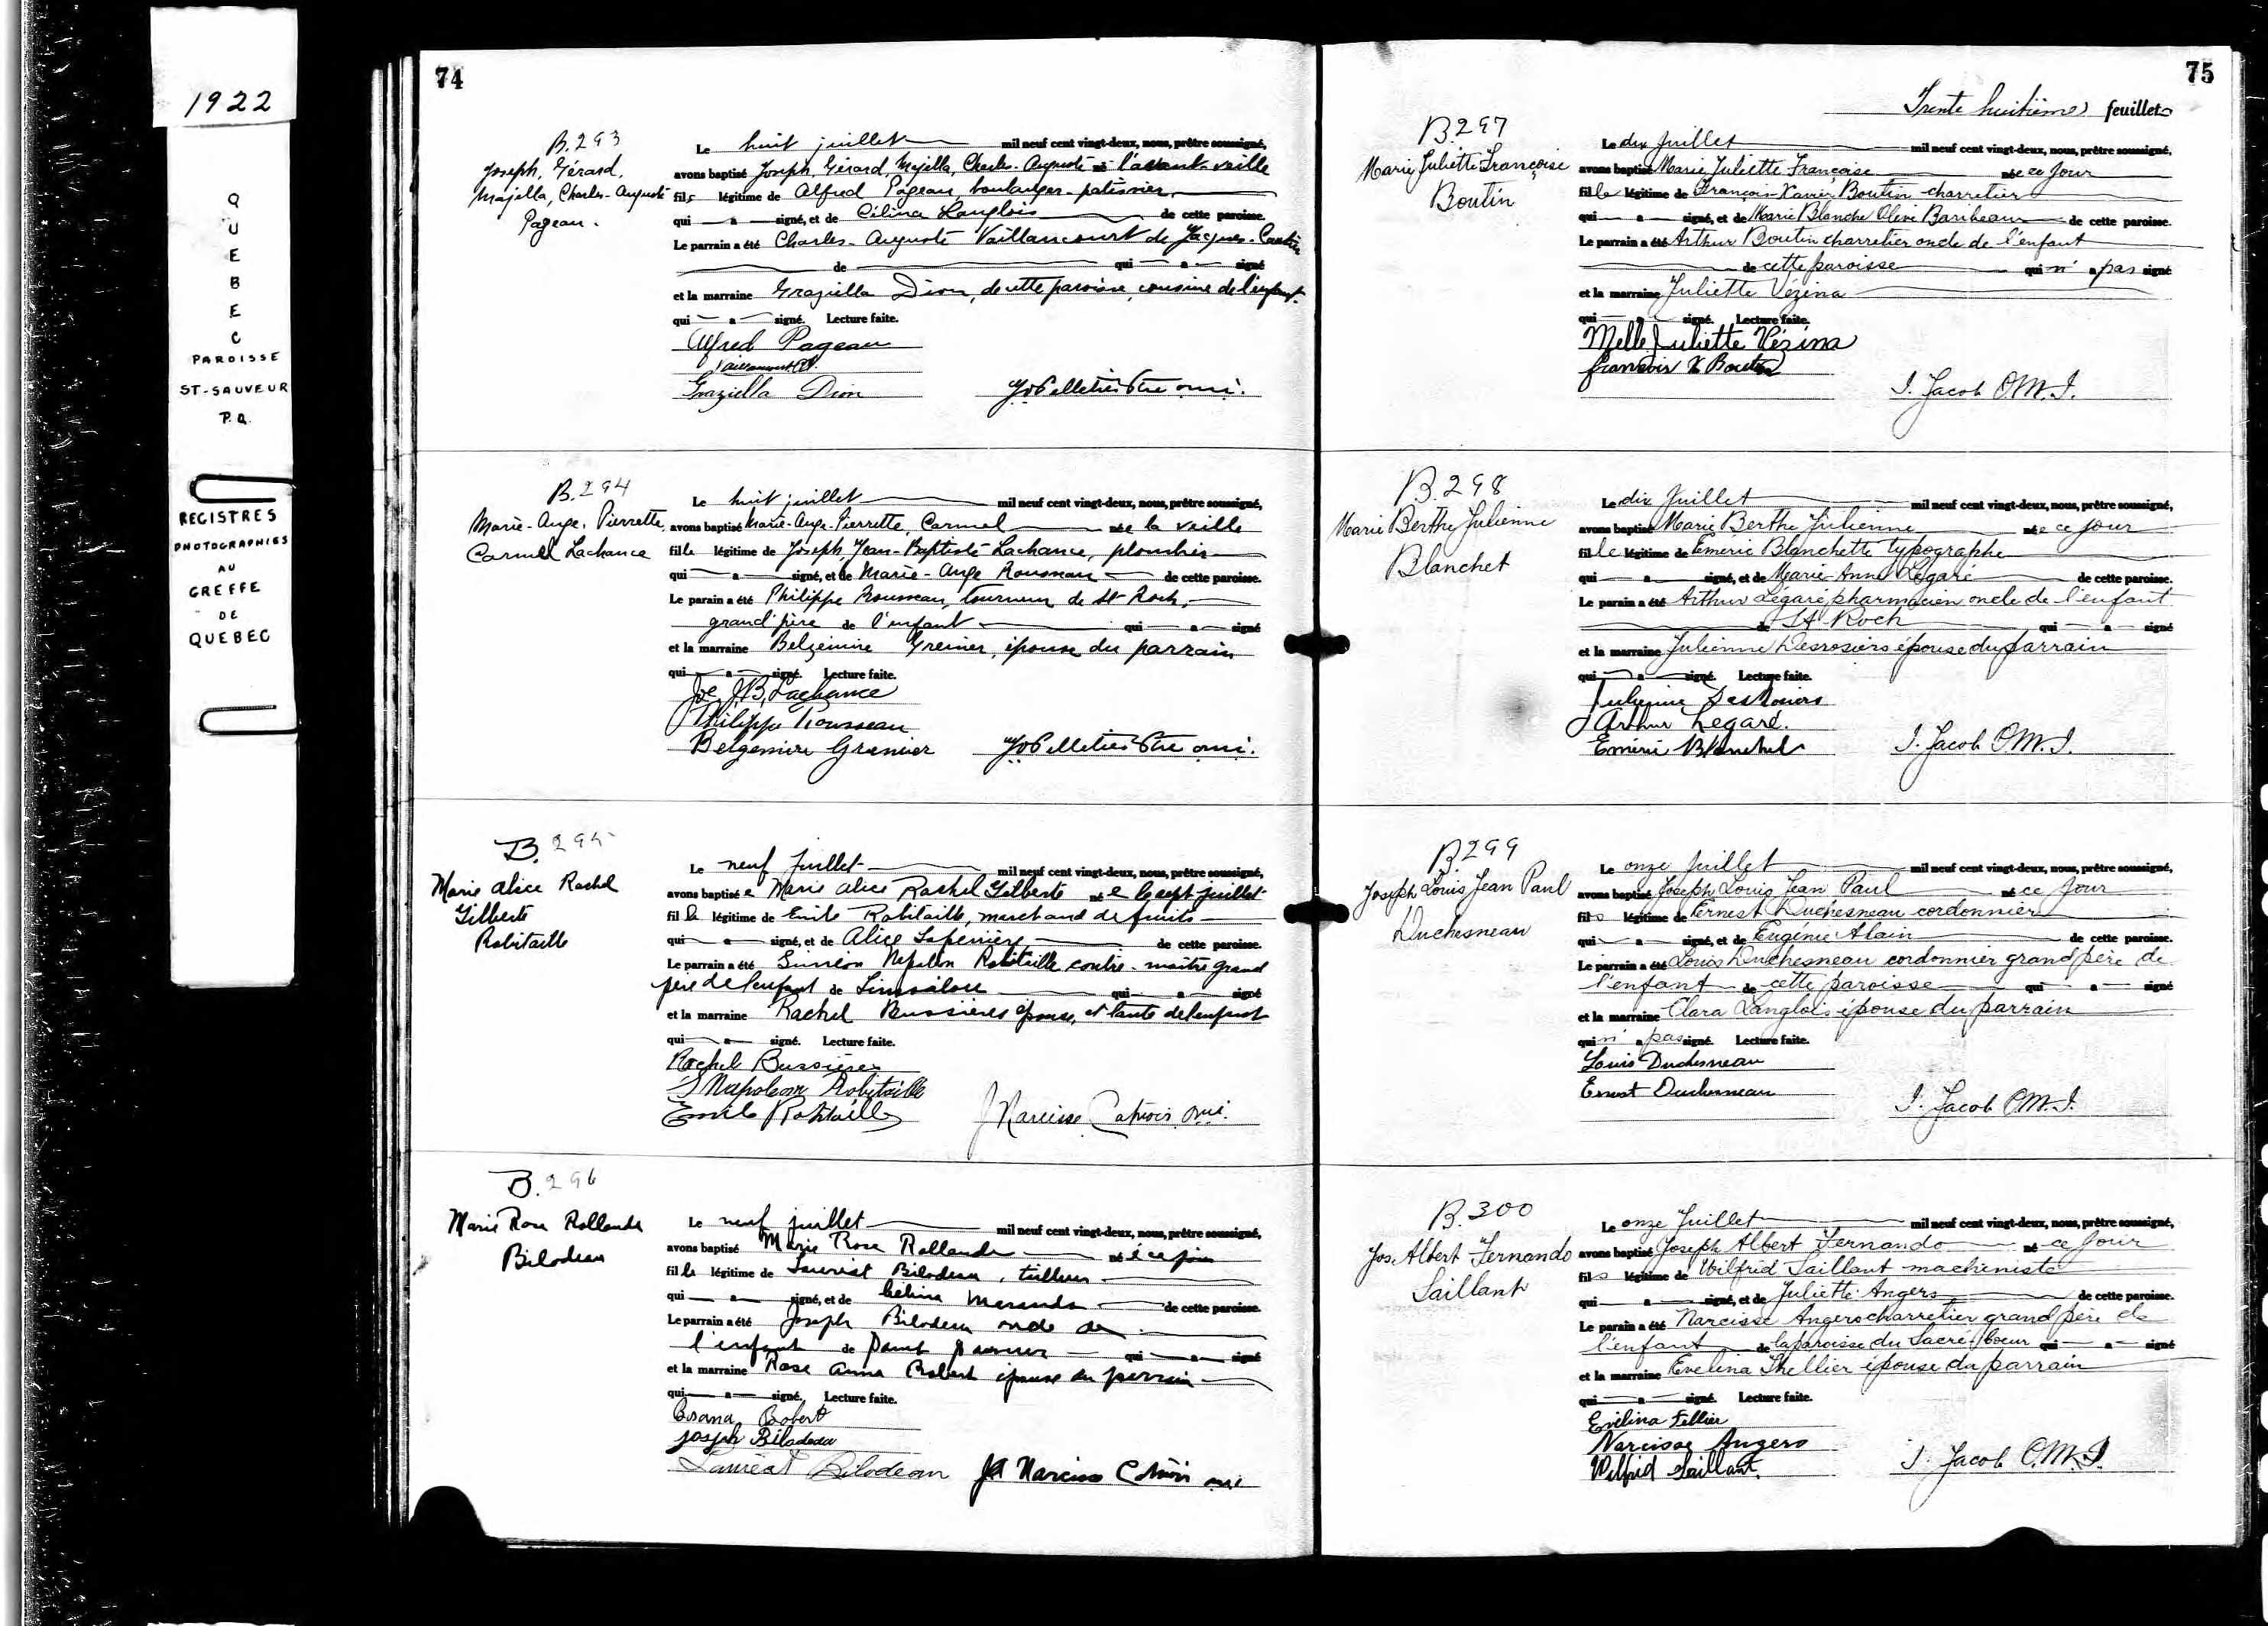 1922
QUEBEC
PAROISSE
ST-SAUVEUR
P.Q.
REGISTRES
PHOTOGRAPHIES
AU
GREFFE
DE
QUEBEC
74
B.293
Joseph, Gérard,
Majella, Charles-Auguste
Pageau.
Le huit juillet mil neuf cent vingt-deux, nous, prêtre soussigné,
avons baptisé Joseph, Gérard, Majella, Charles-Auguste né l'avant-veille
fils légitime de Alfred Pageau, boulanger-patissier
qui a signé, et de Célina Langlois de cette paroisse.
Le parrain a été Charles-Auguste Vaillancourt de Jacques-Cartier
de qui a signé
et la marraine Graziella Dion, de cette paroisse, cousine de l'enfant.
qui a signé. Lecture faite.
Alfred Pageau
Graziella Dion Pelletier Ptre omi.
B.294
Marie-Ange, Pierrette,
Carmel Lachance
Le huit juillet mil neuf cent vingt-deux, nous, prêtre soussigné,
avons baptisé Marie-Ange-Pierrette, Carmel née la veille
fille légitime de Joseph, Jean-Baptiste Lachance, plombier
qui a signé, et de Marie-Ange Rousseau de cette paroisse.
Le parain a été Philippe Rousseau, tourneur de St Roch,
grand'père de l'enfant qui a signé
et la marraine Belzémire Grenier, épouse du parrain
qui a signé. Lecture faite.
Joe J.B. Lachance
Philippe Rousseau
Belzemire Grenier Pelletier Ptre omi.
B.295
Marie Alice Rachel
Gilberte
Robitaille
Le neuf Juillet mil neuf cent vingt-deux, nous, prêtre soussigné,
avons baptisé e Marie Alice Rachel Gilberte né e le sept juillet
fille légitime de Emile Robitaille, marchand de fruits
qui a signé, et de Alice Laperrière de cette paroisse.
Le parrain a été Siméon Napoléon Robitaille contre-maître grand
père de l'enfant de Limoilou qui a signé
et la marraine Rachel Bussières épouse, et tante de l'enfant
qui a signé. Lecture faite.
Rachel Bussières
S Napoleon Robitaille
Emile Robitaille J Narcisse Cotnoir omi.
B.296
Marie Rose Rollande
Bilodeau
Le neuf juillet mil neuf cent vingt-deux, nous, prêtre soussigné,
avons baptisé Marie Rose Rollande né e ce jour
fille légitime de Lauréat Bilodeau, tailleur
qui a signé, et de Célina de cette paroisse.
Le parrain a été Joseph Bilodeau oncle de
l'enfant de qui a signé
et la marraine Rose Anna Robert épouse du parrain
qui a signé. Lecture faite.
Joseph Bilodeau
Lauréat Bilodeau J Narcisse Cotnoir omi
75
Trente huitième feuillet
B.297
Marie Juliette Françoise
Boutin
Le dix Juillet mil neuf cent vingt-deux, nous, prêtre soussigné,
avons baptisé Marie Juliette Françoise née ce jour
fille légitime de François-Xavier Boutin charretier
qui a signé, et de Marie Blanche Olive Baribeau de cette paroisse.
Le parrain a été Arthur Boutin charretier oncle de l'enfant
de cette paroisse qui n'a pas signé
et la marraine Juliette Vézina
qui a signé. Lecture faite.
Melle Juliette Vézina
francois X Boutin
I. Jacob O.M.I.
B.298
Marie Berthe Julienne
Blanchet
Le dix Juillet mil neuf cent vingt-deux, nous, prêtre soussigné,
avons baptisé Marie Berthe Julienne née ce jour
fille légitime de Emeric Blanchette typographe
qui a signé, et de Marie-Anne Légaré de cette paroisse.
Le parain a été Arthur Légaré pharmacien oncle de l'enfant
de St Roch qui a signé
et la marraine Julienne Desrosiers épouse du parrain
qui a signé. Lecture faite.
Julienne DesRosiers
Arthur Legaré.
Emeric Blanchet I. Jacob O.M.I.
B.299
Joseph Louis Jean Paul
Duchesneau
Le onze juillet mil neuf cent vingt-deux, nous, prêtre soussigné,
avons baptisé Joseph Louis Jean Paul né ce jour
fils légitime de Ernest Duchesneau cordonnier
qui a signé, et de Eugénie Alain de cette paroisse.
Le parrain a été Louis Duchesneau cordonnier grand père de
l'enfant de cette paroisse qui a signé
et la marraine Clara Langlois épouse du parrain
qui n'a pas signé. Lecture faite.
Louis Duchesneau
Ernest Duchesneau
I. Jacob O.M.I.
B.300
Jos. Albert Fernando
Saillant
Le onze Juillet mil neuf cent vingt-deux, nous, prêtre soussigné,
avons baptisé Joseph Albert Fernando né ce jour
fils légitime de Wilfrid Saillant machiniste
qui a signé, et de Juliette Angers de cette paroisse.
Le parain a été Narcisse Angers charretier grand père de
l'enfant de la paroisse du Sacré-Coeur qui a signé
et la marraine Evelina Thellier épouse du parrain
qui a signé. Lecture faite.
Evelina Tellier
Narcisse Angers
Wilfrid Saillant. I. Jacob O.M.I.